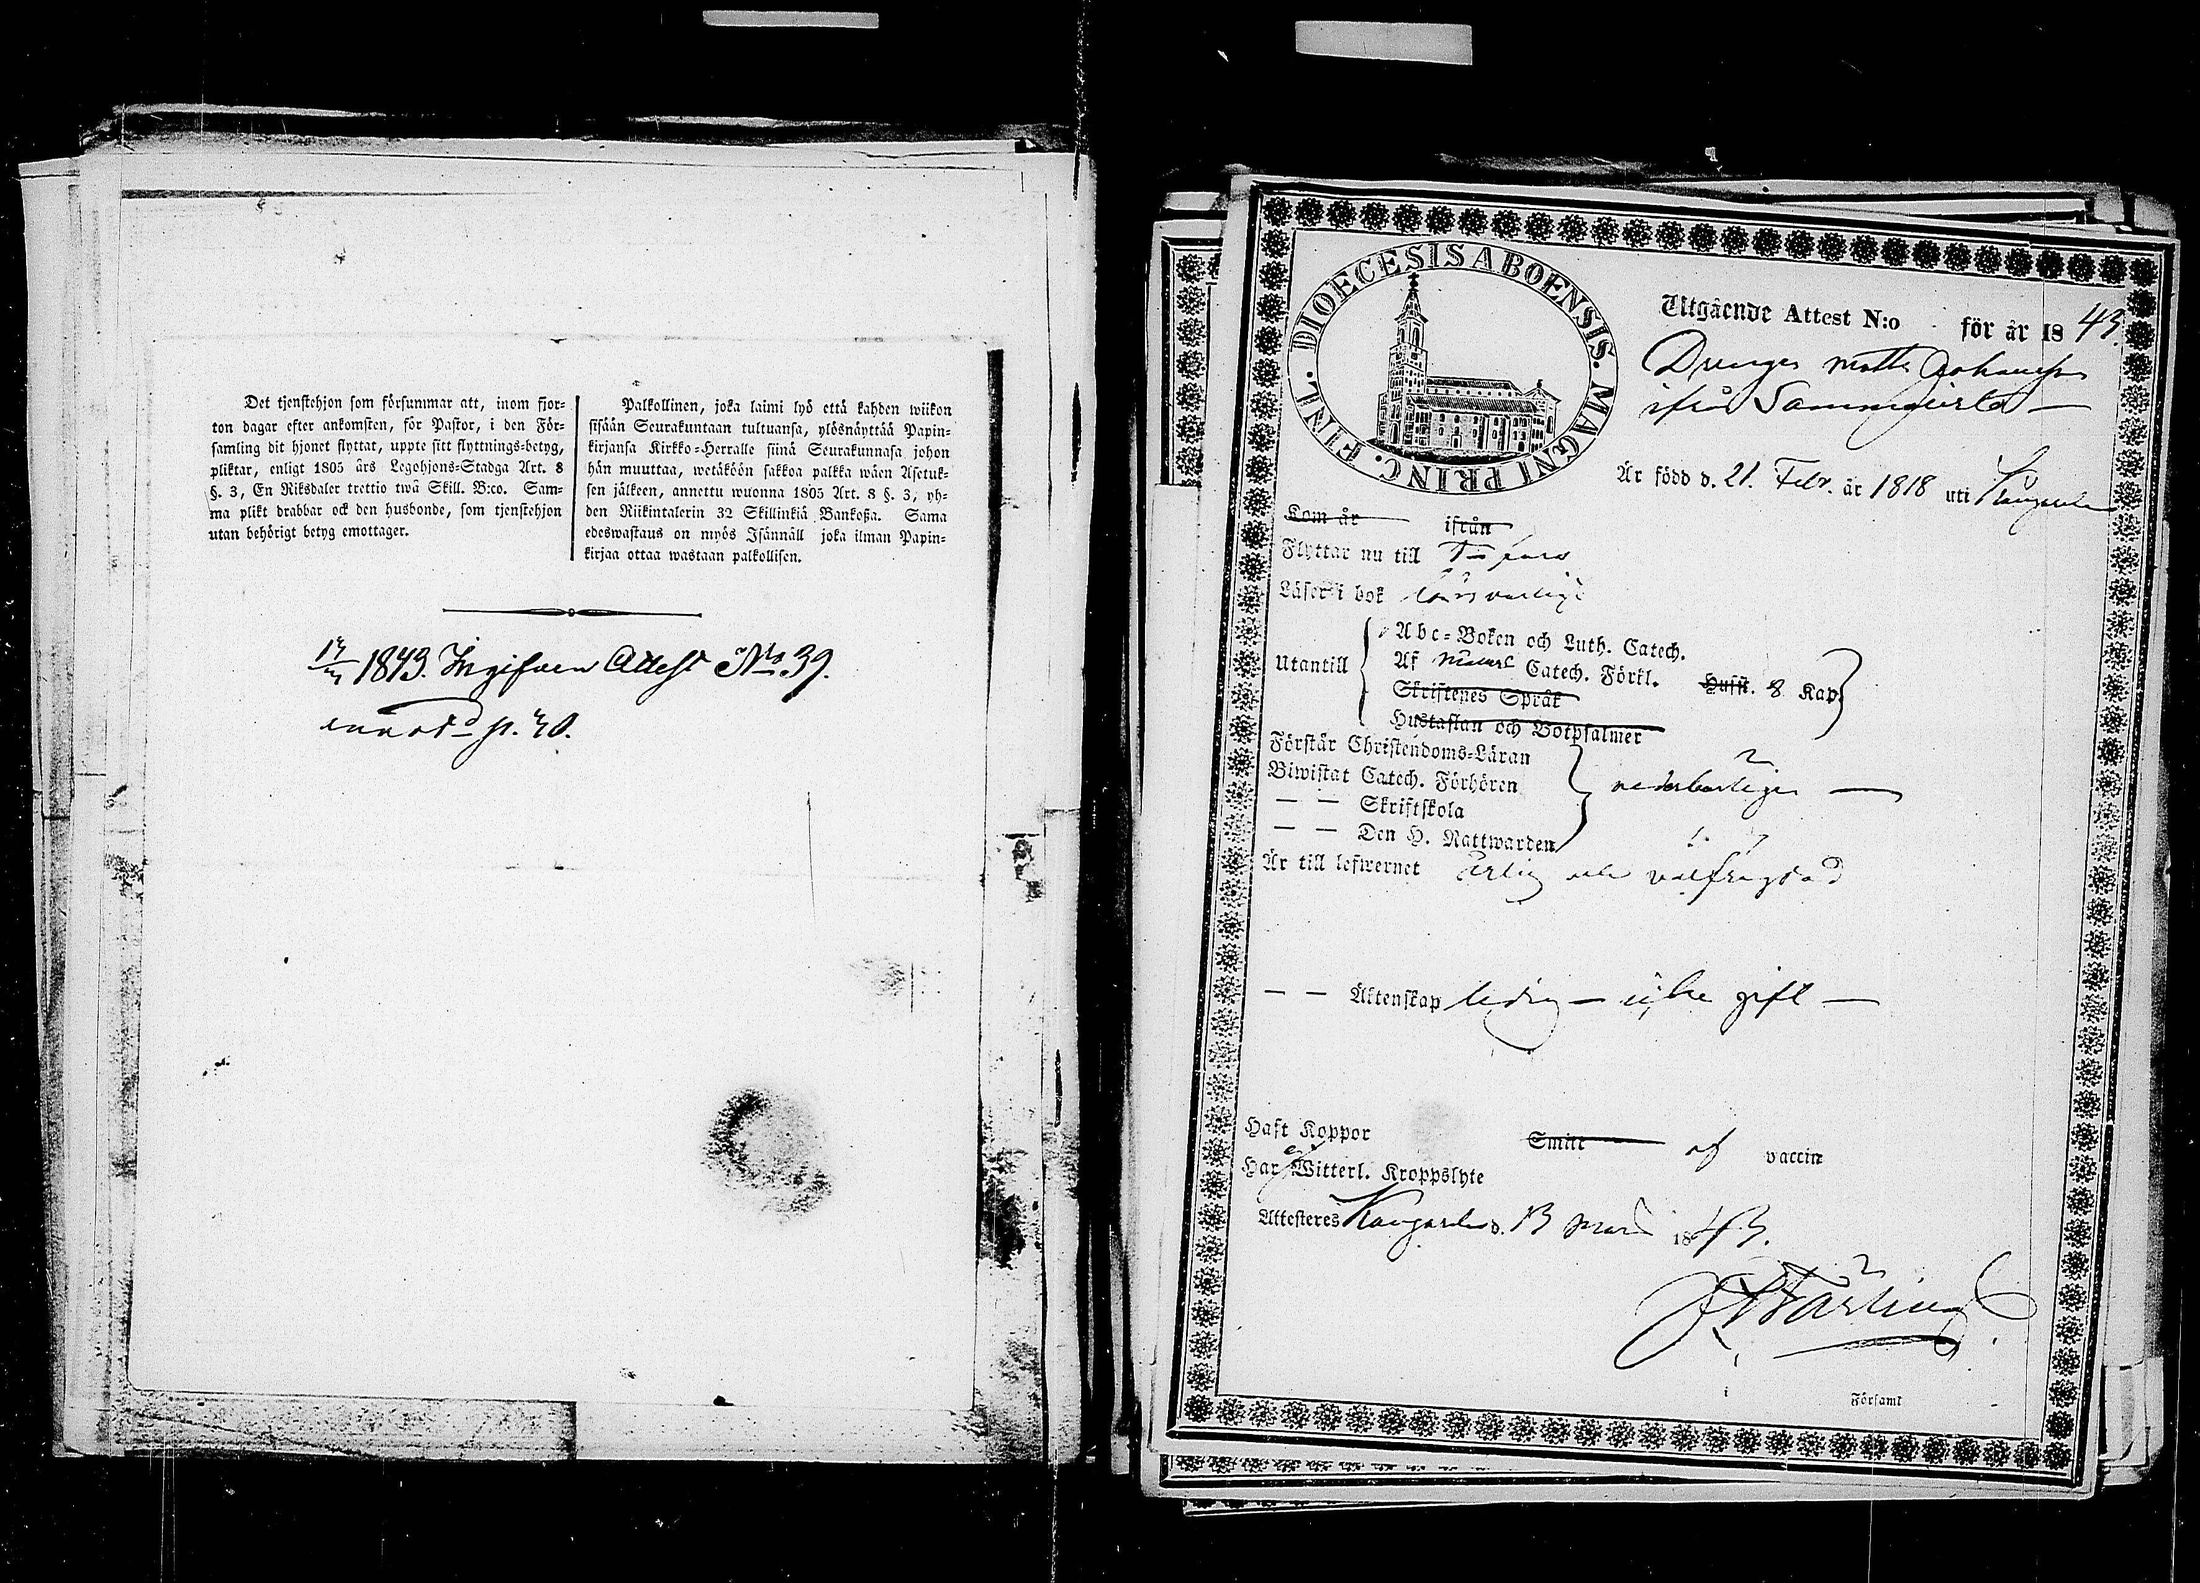 Det tjenstehjon som försummar att, inom fjor-
ton dagar efter ankomsten, för Pastor, i den För-
samling dit hjonet flyttat, uppte sitt flyttnings-betyg,
pliktar, enligt 1805 års Legohjons-Stadga Art. 8
§. 3, En Riksdaler trettio twå Skill. B:co. Sam-
ma plikt drabbar ock den husbonde, som tjenstehjon
utan behörigt betyg emottager.
Palkollinen, joka laimi lyö että kahden wiikon
sisään Seurakuntaan tultuansa, ylösnäyttää Papin-
kirjansa Kirkko-Herralle siinä Seurakunnasa johon
hän muuttaa, wetäköön sakkoa palkka wäen Asetuk-
sen jälkeen, annettu wuonna 1805 Art. 8 §. 3, yh-
den Riikintalerin 32 Skillinkiä Bankoßa. Sama
edeswastaus on myös Isännäll joka ilman Papin-
kirjaa ottaa wastaan palkollisen.
1843. Ingifven Attest No 39.
DIOECESIS ABOENSIS. MAGNI PRINC. FINL.
Utgående Attest N:o för år 1843.
Drengen Matts Johansson
ifrån Sammguista
Är född d. 21. Febr. år 1818 uti Kangasala
Kom år ifrån
Flyttar nu till
Läser i bok försvarligt
Utantill
Abc-Boken och Luth. Catech.
Af Catech. Förkl. Hust. 8 Kap.
Skriftenes Språk
Hustaflan och Botpsalmer
Förstår Christendoms-Läran
Biwistat Catech. Förhören vederbörligen
— — Skriftskola
— — Den H. Nattwarden
Är till lefwernet Ärlig och välfrägdad
— — Äktenskap ledig — icke gift —
Haft Koppor Smitt af vaccin
Har ej Witterl. Kroppslyte
Attesteres Kangasala d. 13 Mars 1843.
i Församl